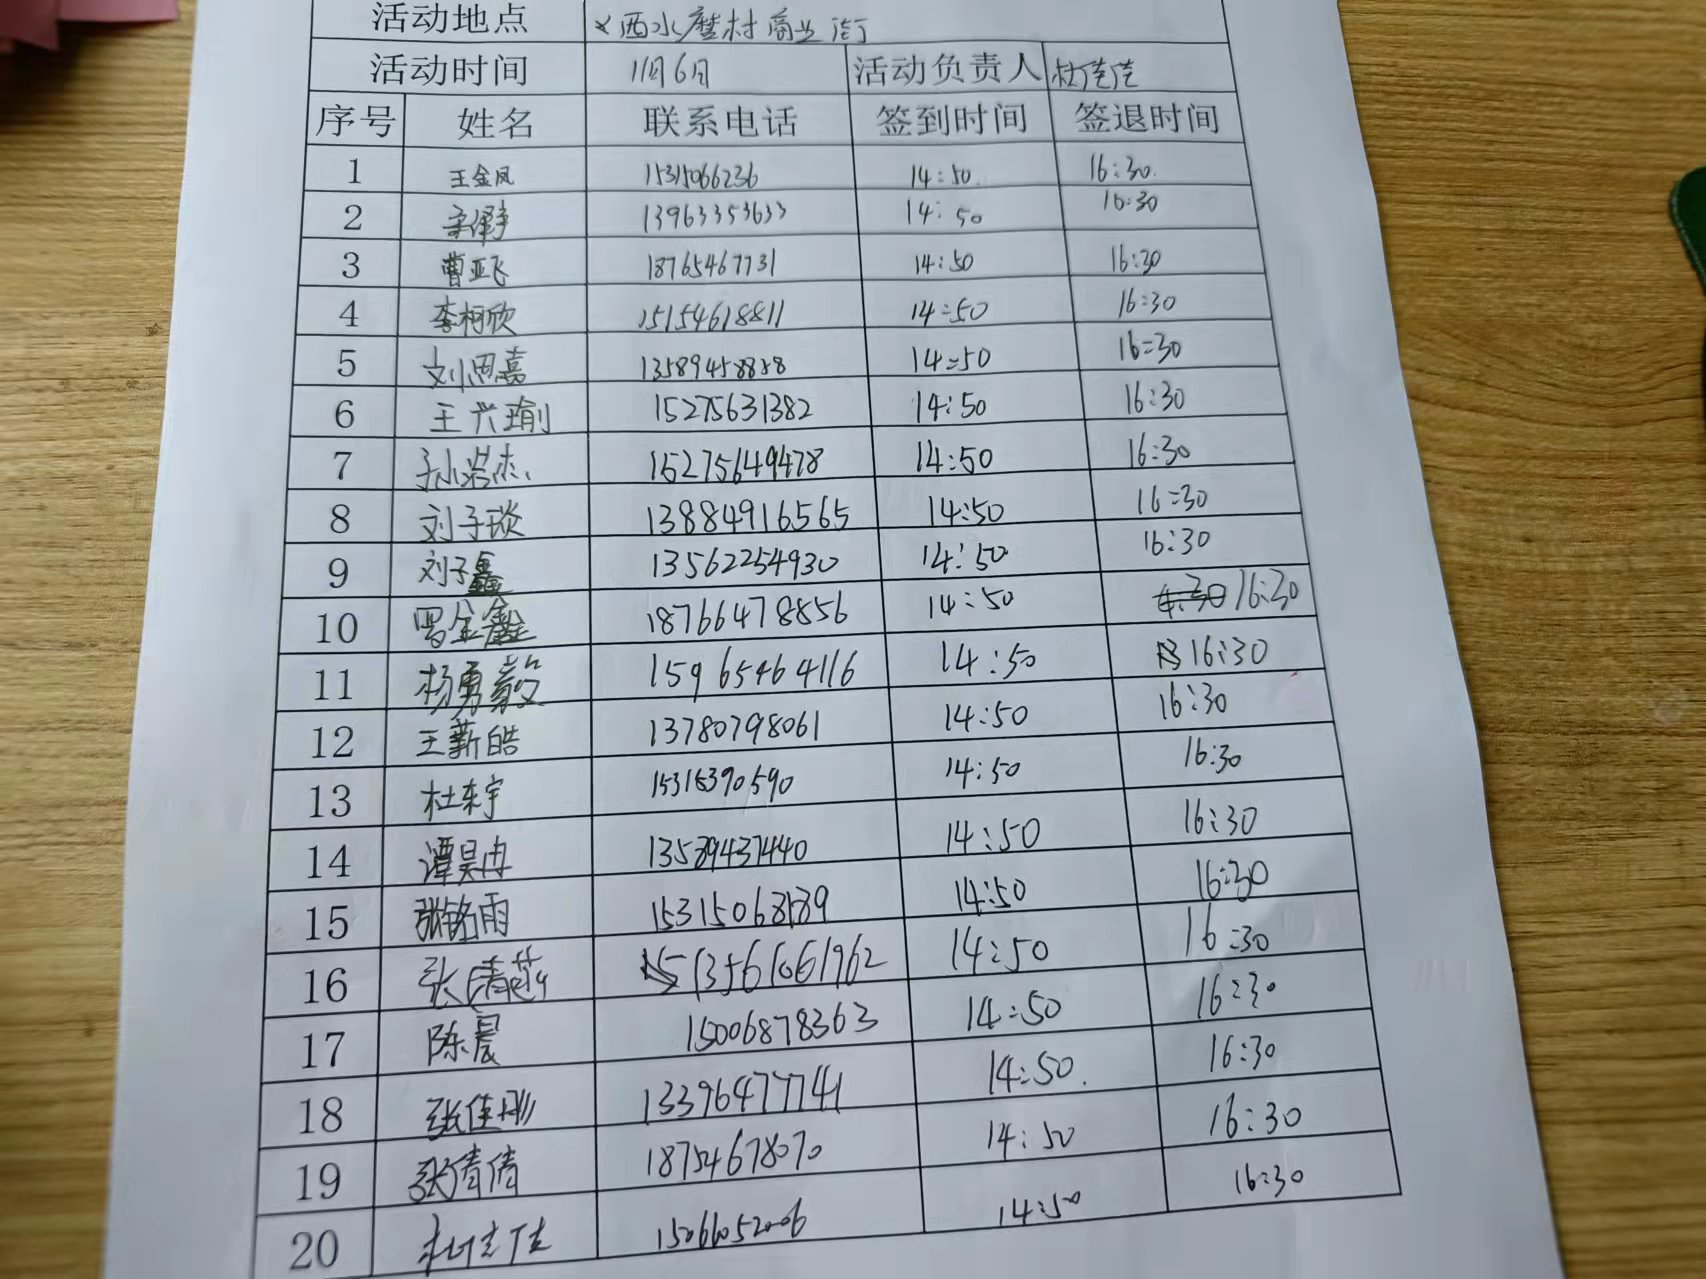 活动地点 西水磨村商业街
活动时间 11月6日 活动负责人 杜佳佳
序号 姓名 联系电话 签到时间 签退时间
1 王金凤 15315066236 14:50 16:30
2 13963353633 14:50 16:30
3 曹亚飞 18765467731 14:50 16:30
4 李柯欣 15154618811 14:50 16:30
5 刘思嘉 13589458858 14:50 16:30
6 王兴瑜 15275631382 14:50 16:30
7 孙浩杰 15275649478 14:50 16:30
8 刘子琰 13884916565 14:50 16:30
9 刘子鑫 13562254930 14:50 16:30
10 罗金鑫 18766478856 14:50 16:30
11 杨勇毅 15965464116 14:50 16:30
12 王新皓 13780798061 14:50 16:30
13 杜东宇 15315390590 14:50 16:30
14 谭昊冉 13589437440 14:50 16:30
15 张铭雨 15315068189 14:50 16:30
16 张倩 13561061962 14:50 16:30
17 陈晨 15006878363 14:50 16:30
18 张佳彤 13396477741 14:50 16:30
19 张倩倩 18754678070 14:50 16:30
20 杜佳佳 15066052006 14:50 16:30